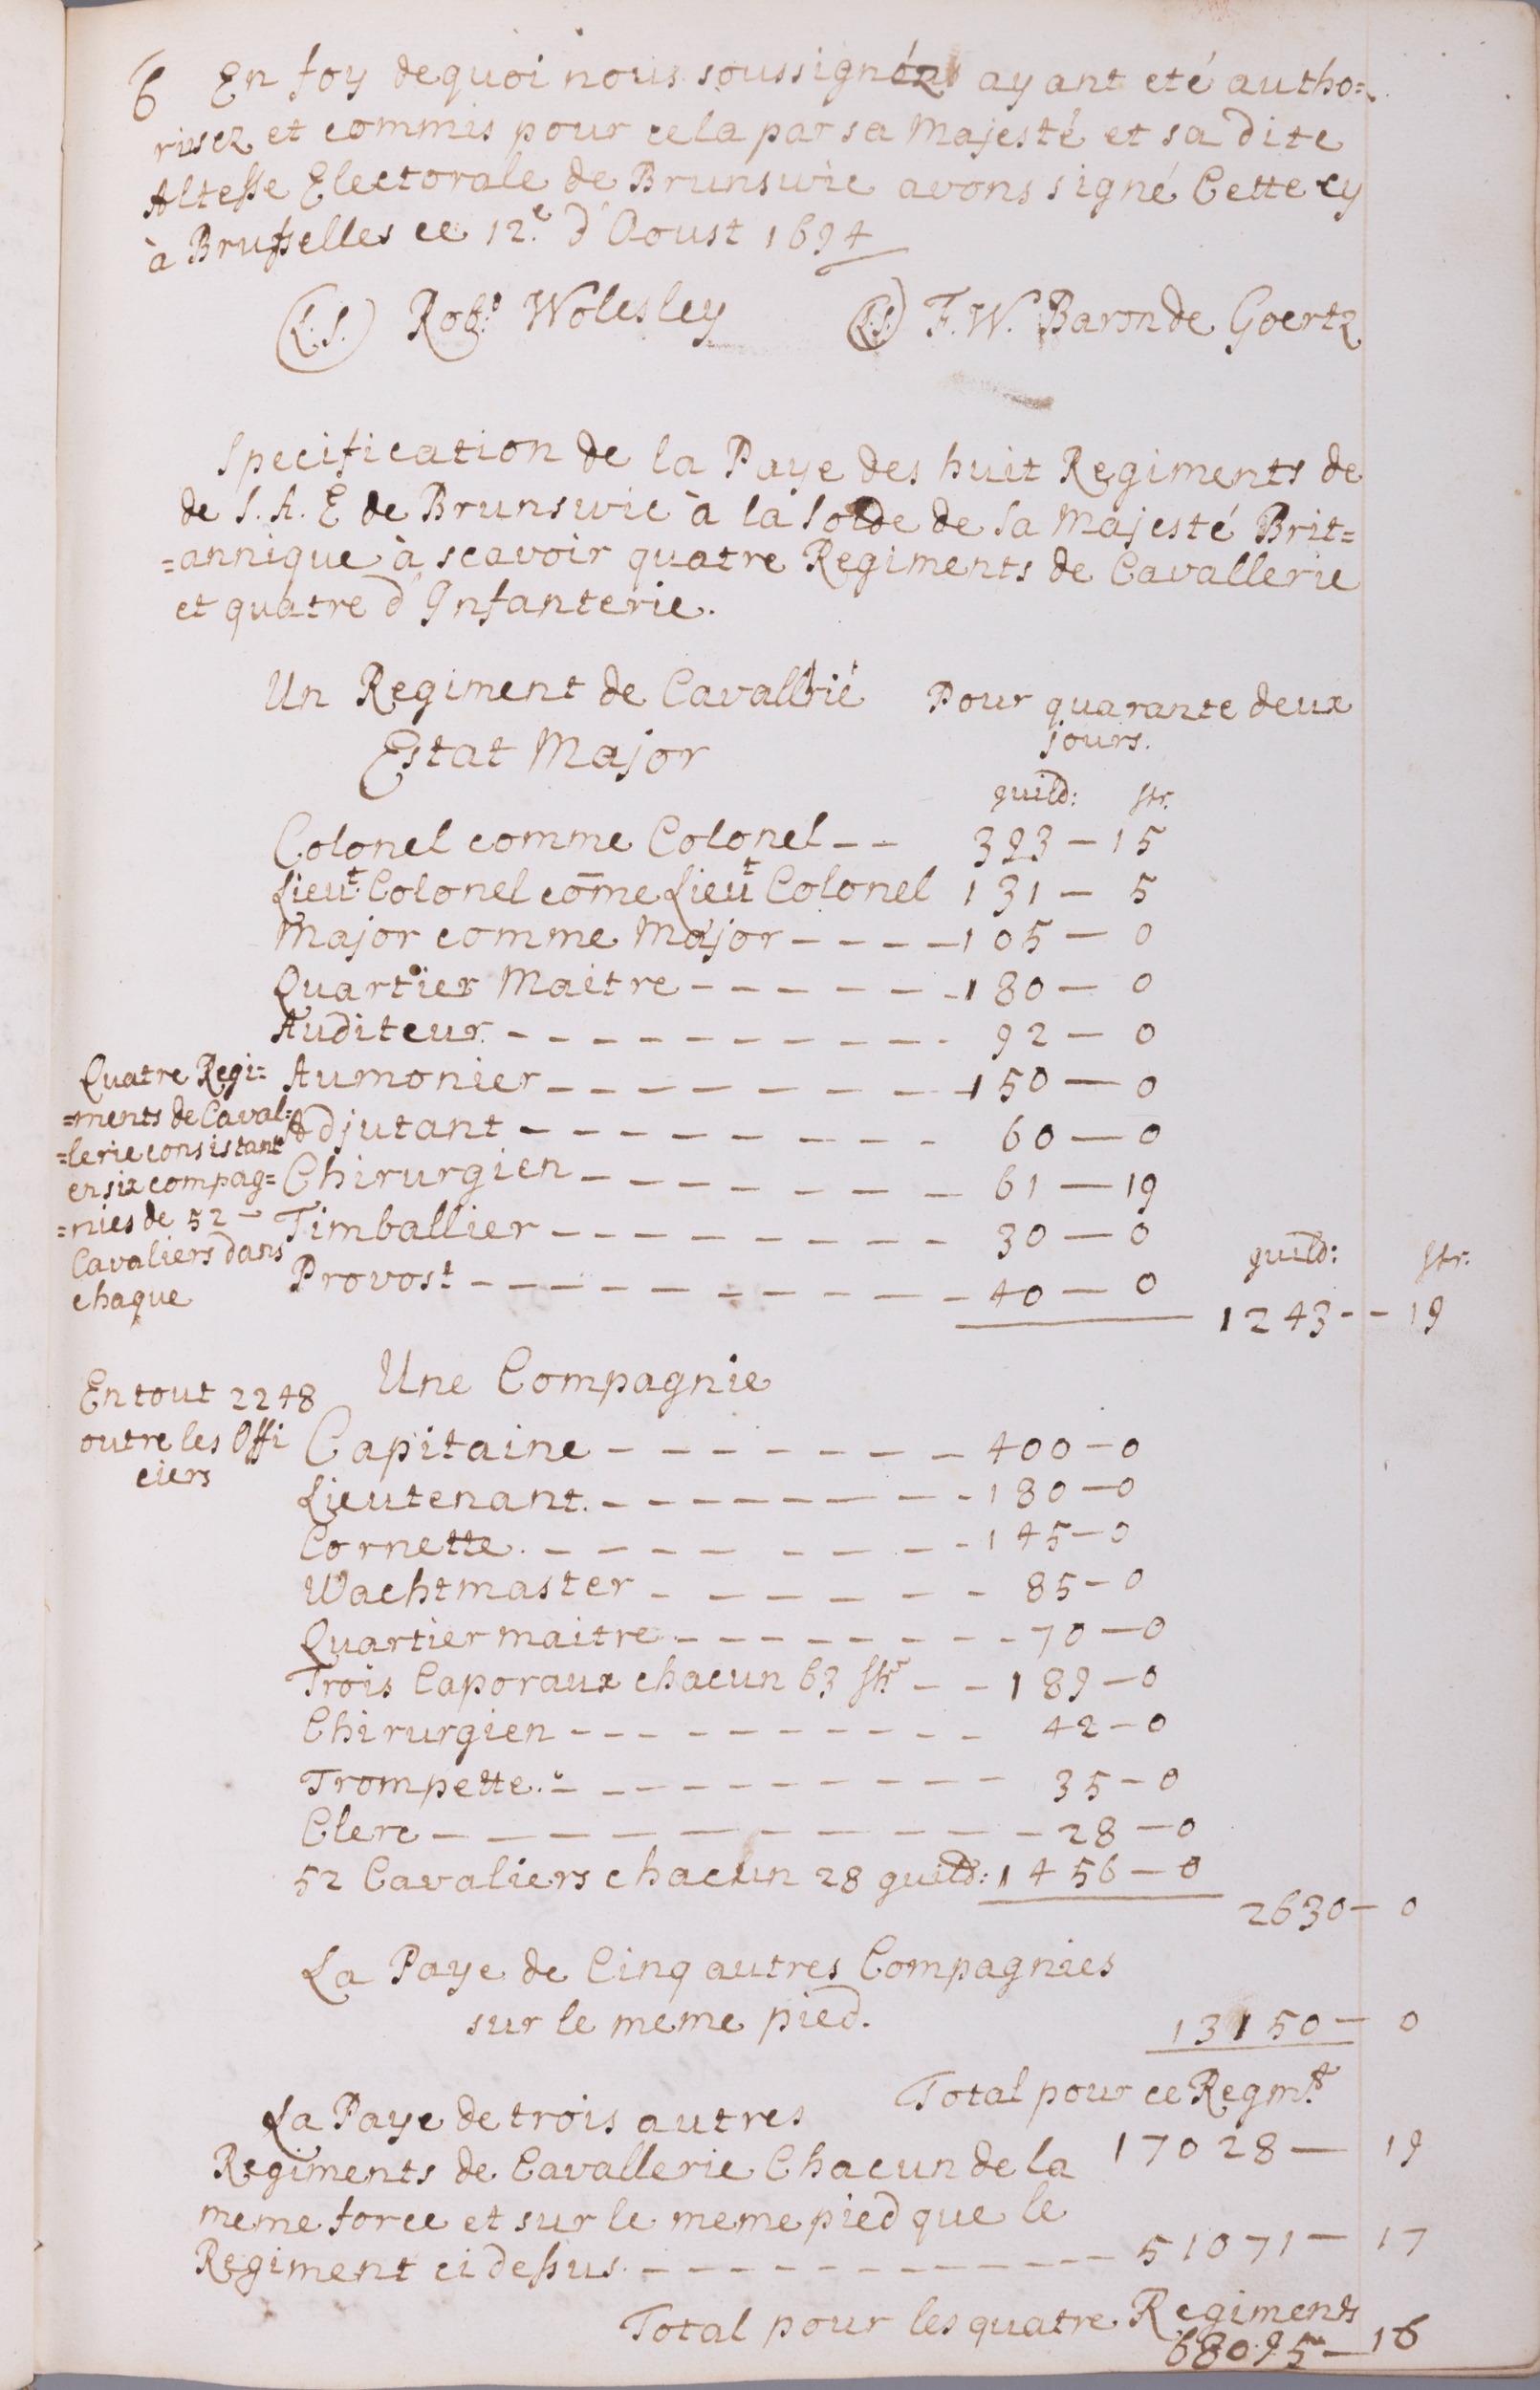 6 En foy dequoi nous soussignéz ayant eté autho=
risez et commis pour cela par sa Majesté et sa dite
Altesse Electorale de Brunswic avons signé Cette cy
à Brusselles ce 12.e d'Aoust 1694
(L.S.) Rob.t Wolesley (L.S.) F. W. Baron de Goertz
Specification de la Paye des huit Regiments de
de S. A. E de Brunswic à la Solde de Sa Majesté Brit=
=annique à scavoir quatre Regiments de Cavallerie
et quatre d'Infanterie.
Un Regiment de Cavallrié Pour quarante deux
jours.
Estat Major
guild: str.
Colonel comme Colonel -- 393 - 15
Lieut. Colonel com̄e Lieut Colonel 131 - 5
Major comme Major ---- 105 - 0
Quartier Maitre ------ 180 - 0
Auditeur. ---------- 92 - 0
Aumonier -------- 150 - 0
Adjutant -------- 60 - 0
Chirurgien ------- 61 - 19
Timballier -------- 30 - 0
Provost --------- 40 - 0
guild: str.
1243 -- 19
Quatre Regi=
=ments de Caval=
=lerie consistant
en six compag=
=nies de 52 -
Cavaliers dans
chaque
En tout 2248
outre les Offi
ciers
Une Compagnie
Capitaine ------- 400 - 0
Lieutenant. -------- 180 - 0
Cornette. -------- 145 - 0
Wachtmaster ------ 85 - 0
Quartier maitre -------- 70 - 0
Trois Caporaux chacun 63 str -- 189 - 0
Chirurgien --------- 42 - 0
Trompette. --------- 35 - 0
Clerc ----------- 28 - 0
52 Cavaliers chacun 28 guild: 1456 - 0
2630 - 0
La Paye de Cinq autres Compagnies
sur le meme pied.
13150 - 0
Total pour ce Regmt.
La Paye de trois autres
Regiments de Cavallerie Chacun de la 17028 - 19
meme force et sur le meme pied que le
Regiment ci dessus. ------------ 51071 - 17
Total pour les quatre Regiments
68095 - 16